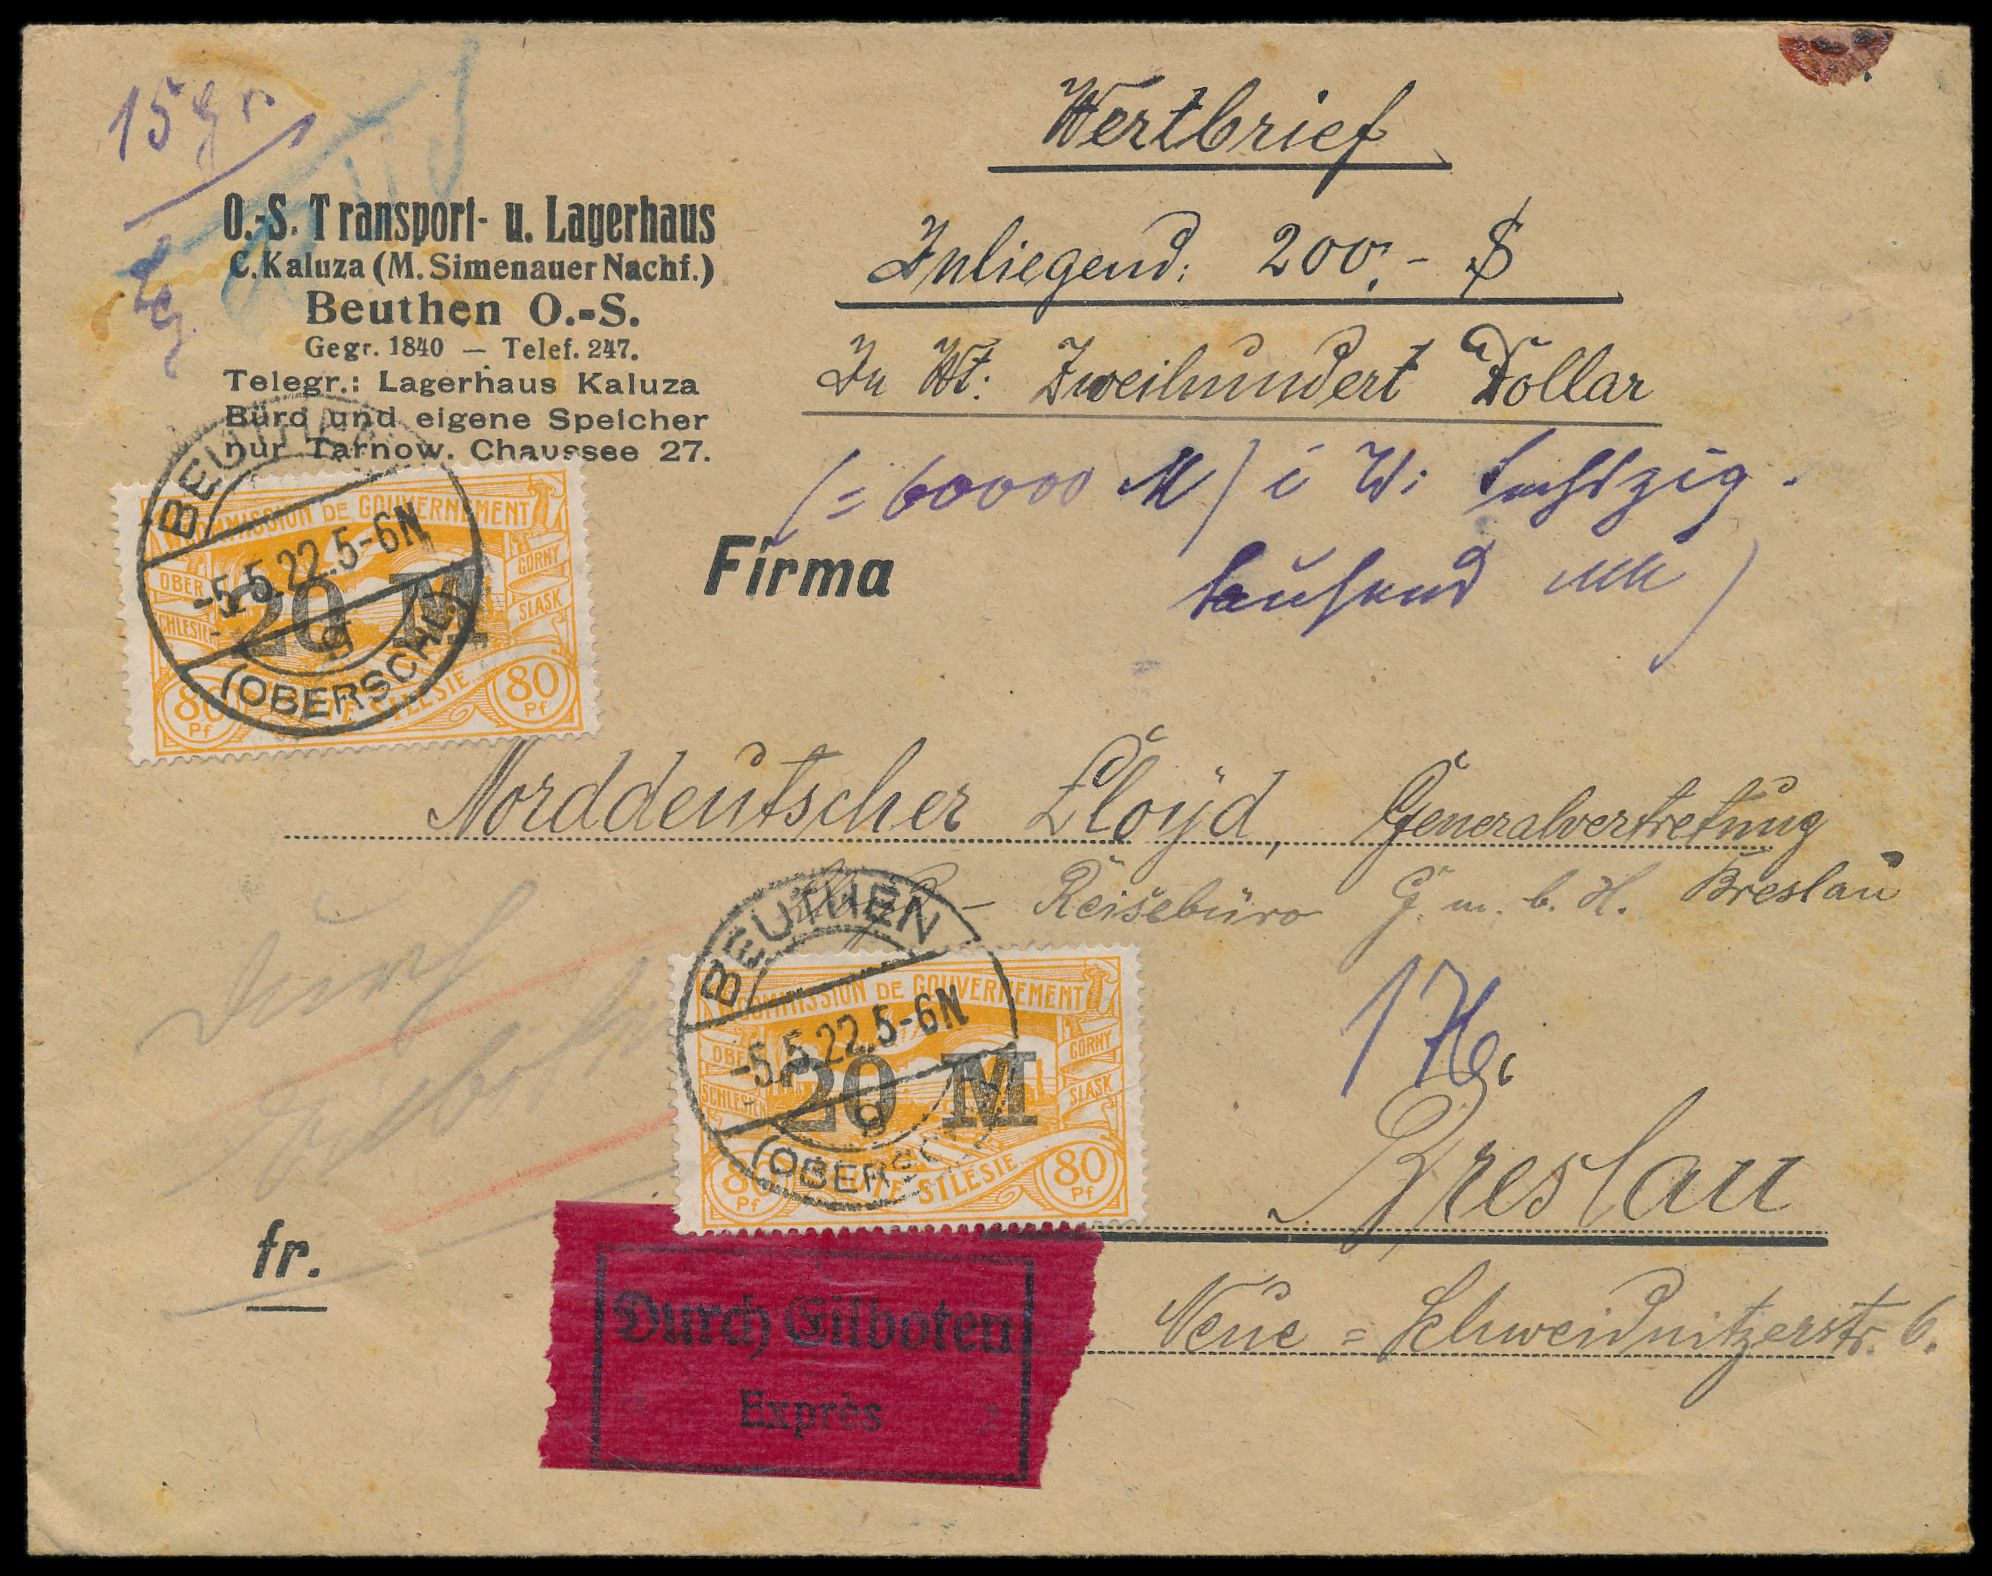 15 gr
Wertbrief
Inliegend: 200,- $
In Wt: Zweihundert Dollar
(= 60000 M) i W: sechszig
tausend Mk)
O.-S. Transport- u. Lagerhaus
C. Kaluza (M. Simenauer Nachf.)
Beuthen O.-S.
Gegr. 1840 — Telef. 247.
Telegr.: Lagerhaus Kaluza
Büro und eigene Speicher
nur Tarnow. Chaussee 27.
COMMISSION DE GOUVERNEMENT
OBER SCHLESIEN
GORNY SLASK
20 M
HAUTE SILÉSIE
80 Pf
80 Pf
BEUTHEN
-5.5.22.5-6N
g
(OBERSCHL)
Firma
Norddeutscher Lloyd, Generalvertretung
Reisebüro G. m. b. H. Breslau
Durch
Eilboten
COMMISSION DE GOUVERNEMENT
OBER SCHLESIEN
GORNY SLASK
20 M
HAUTE SILÉSIE
80 Pf
80 Pf
BEUTHEN
-5.5.22.5-6N
g
(OBERSCHL)
Breslau
fr.
Neue = Schweidnitzerstr. 6.
Durch Eilboten
Exprès